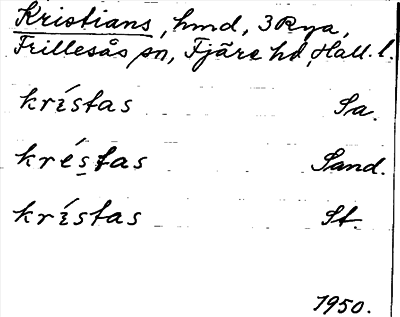 Kristians, hmd, 3 Rya,
Frillesås sn, Fjäre hd, Hall. l.
krístas Sa.
kréstas Sand.
krístas St.
1950.